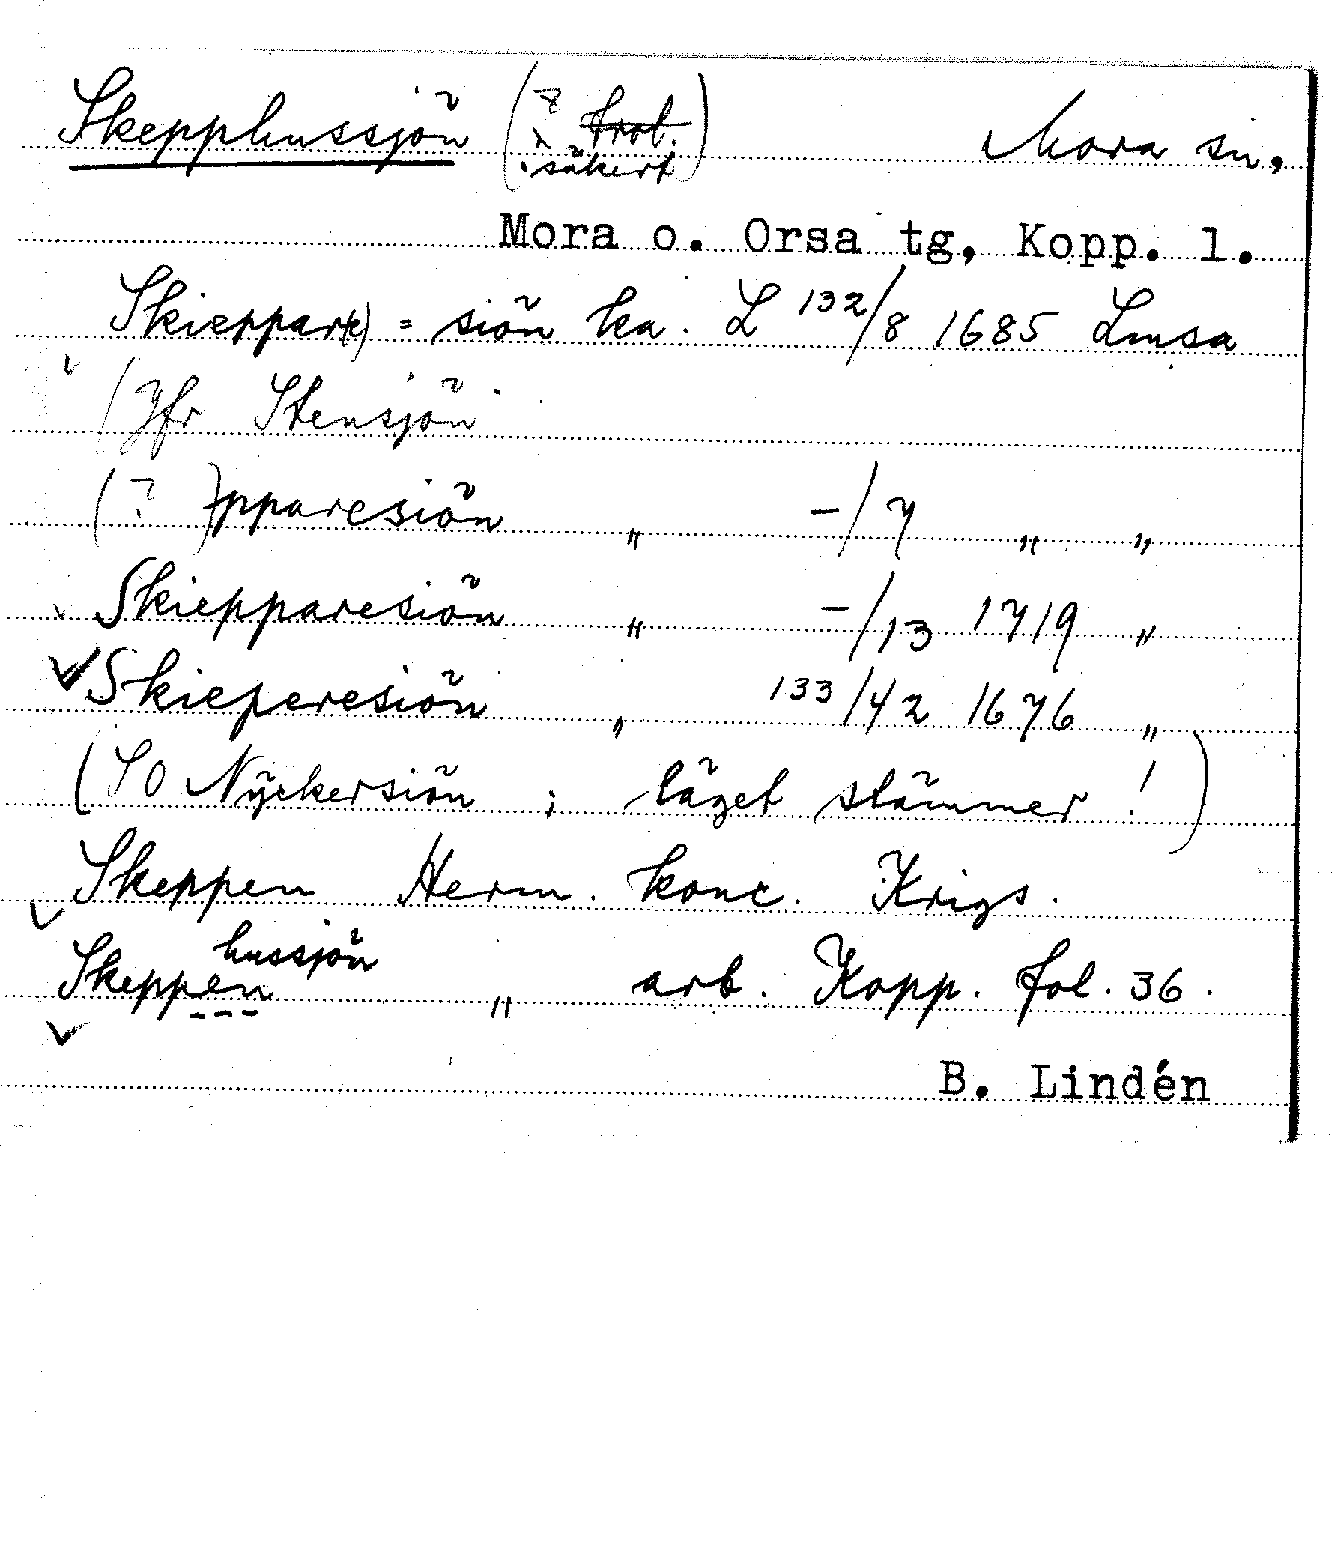 Skepphussjön (? trol. säkert) Mora sn,
Mora o. Orsa tg, Kopp. l.
Skieppar(e) = siön ka. L 132/8 1685 Lmsa
(Jfr Stensjön
(? )pparesiön " -/7 " "
Skiepparesiön " -/13 1719 "
Skieperesiön " 133/42 1676 "
(SO Nÿckersiön ; läget stämmer ! )
Skeppen Herm. konc. Krigs.
hussjön
Skeppen " arb. Kopp. fol. 36.
B. Lindén